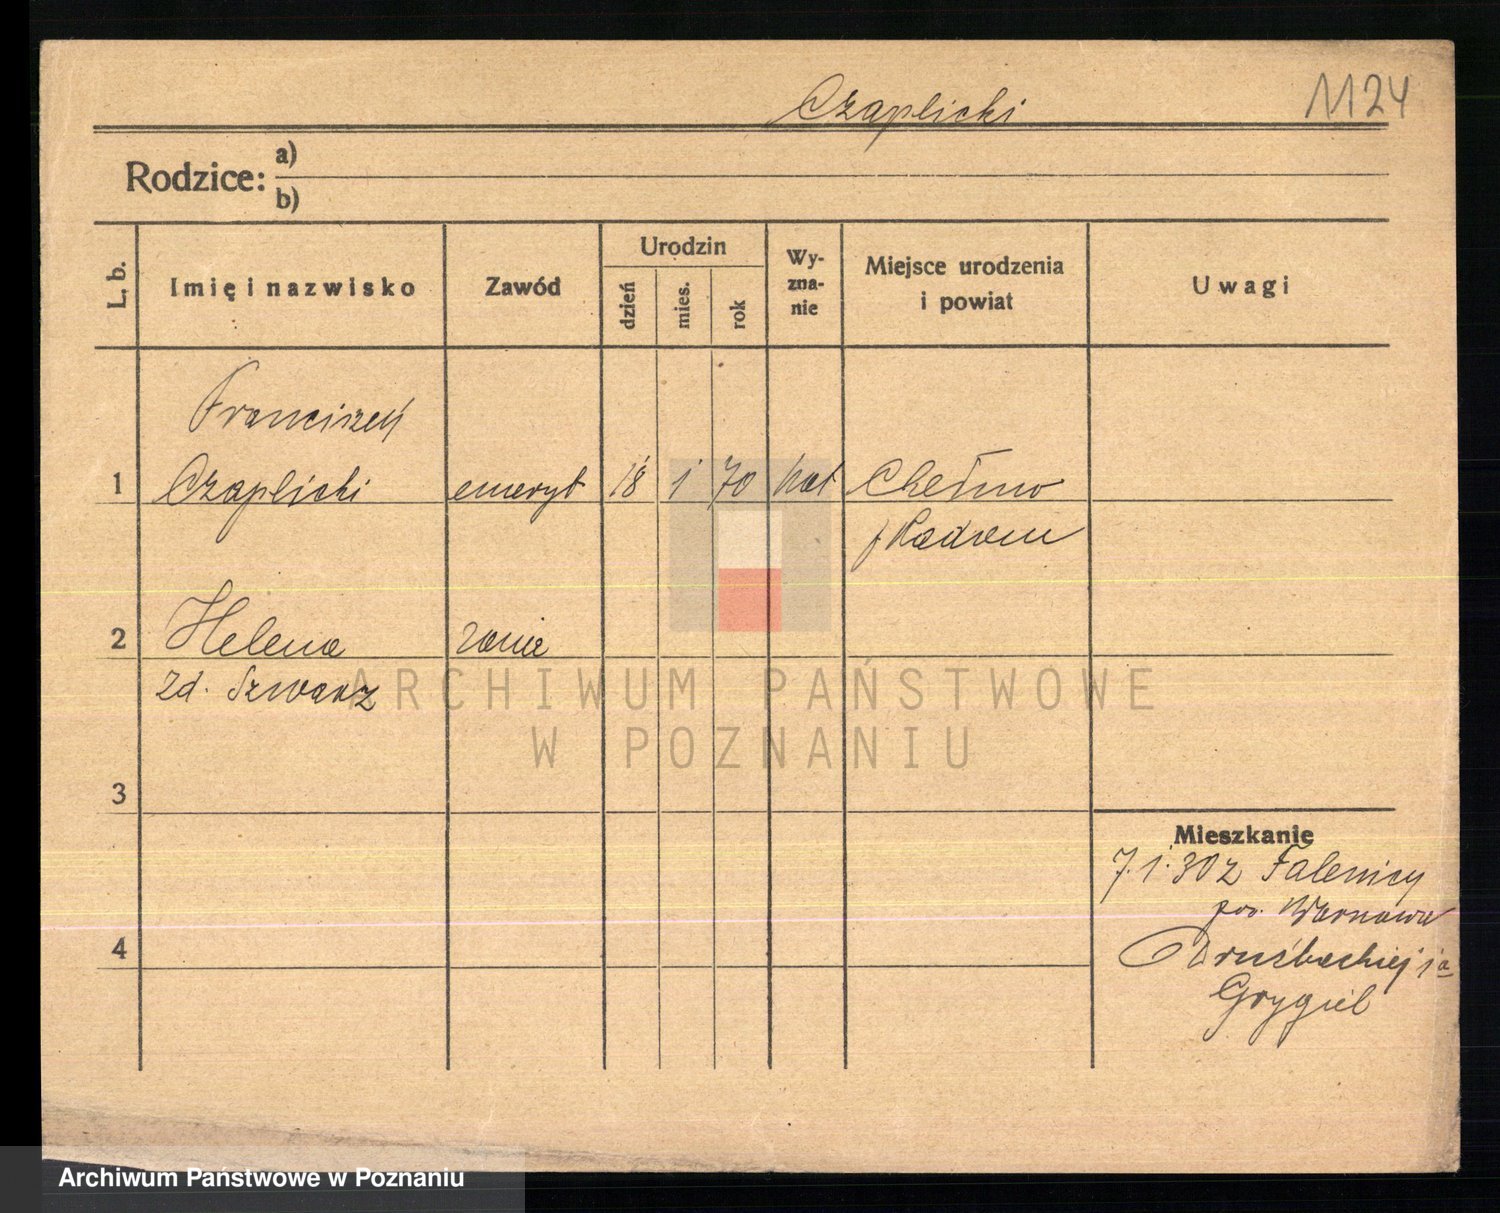 Czaplicki 1124
Rodzice: a)
b)
L. b. Imię i nazwisko Zawód Urodzin dzień mies. rok Wy-zna-nie Miejsce urodzenia i powiat Uwagi
Franciszek
1 Czaplicki emeryt 18 1 70 kat Chełmo
p Radom
2 Helena żona
zd. Szwarz
ARCHIWUM PAŃSTWOWE
W POZNANIU
3
Mieszkanie
7.1.30 z Falenicy
pow. Warszawa
4
Drużbackiej 1a
Grygiel
Archiwum Państwowe w Poznaniu